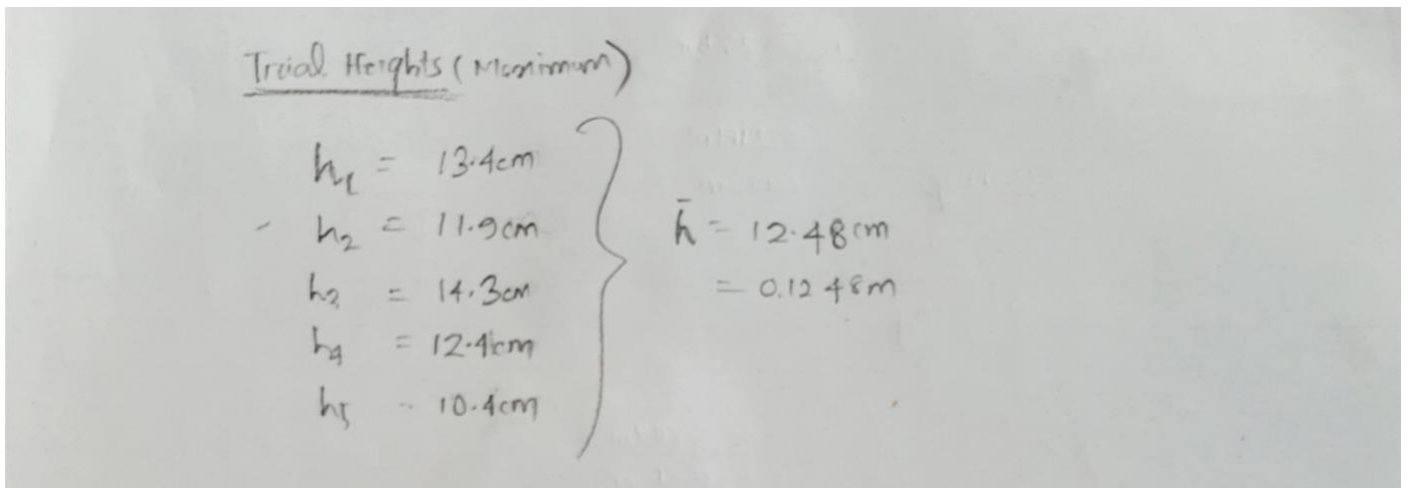 Trial Heights (Maximum)
h₁ = 13.4cm
h₂ = 11.9cm
h₃ = 14.3cm
h₄ = 12.4cm
h₅ - 10.4cm
h̄ = 12.48cm
= 0.1248m